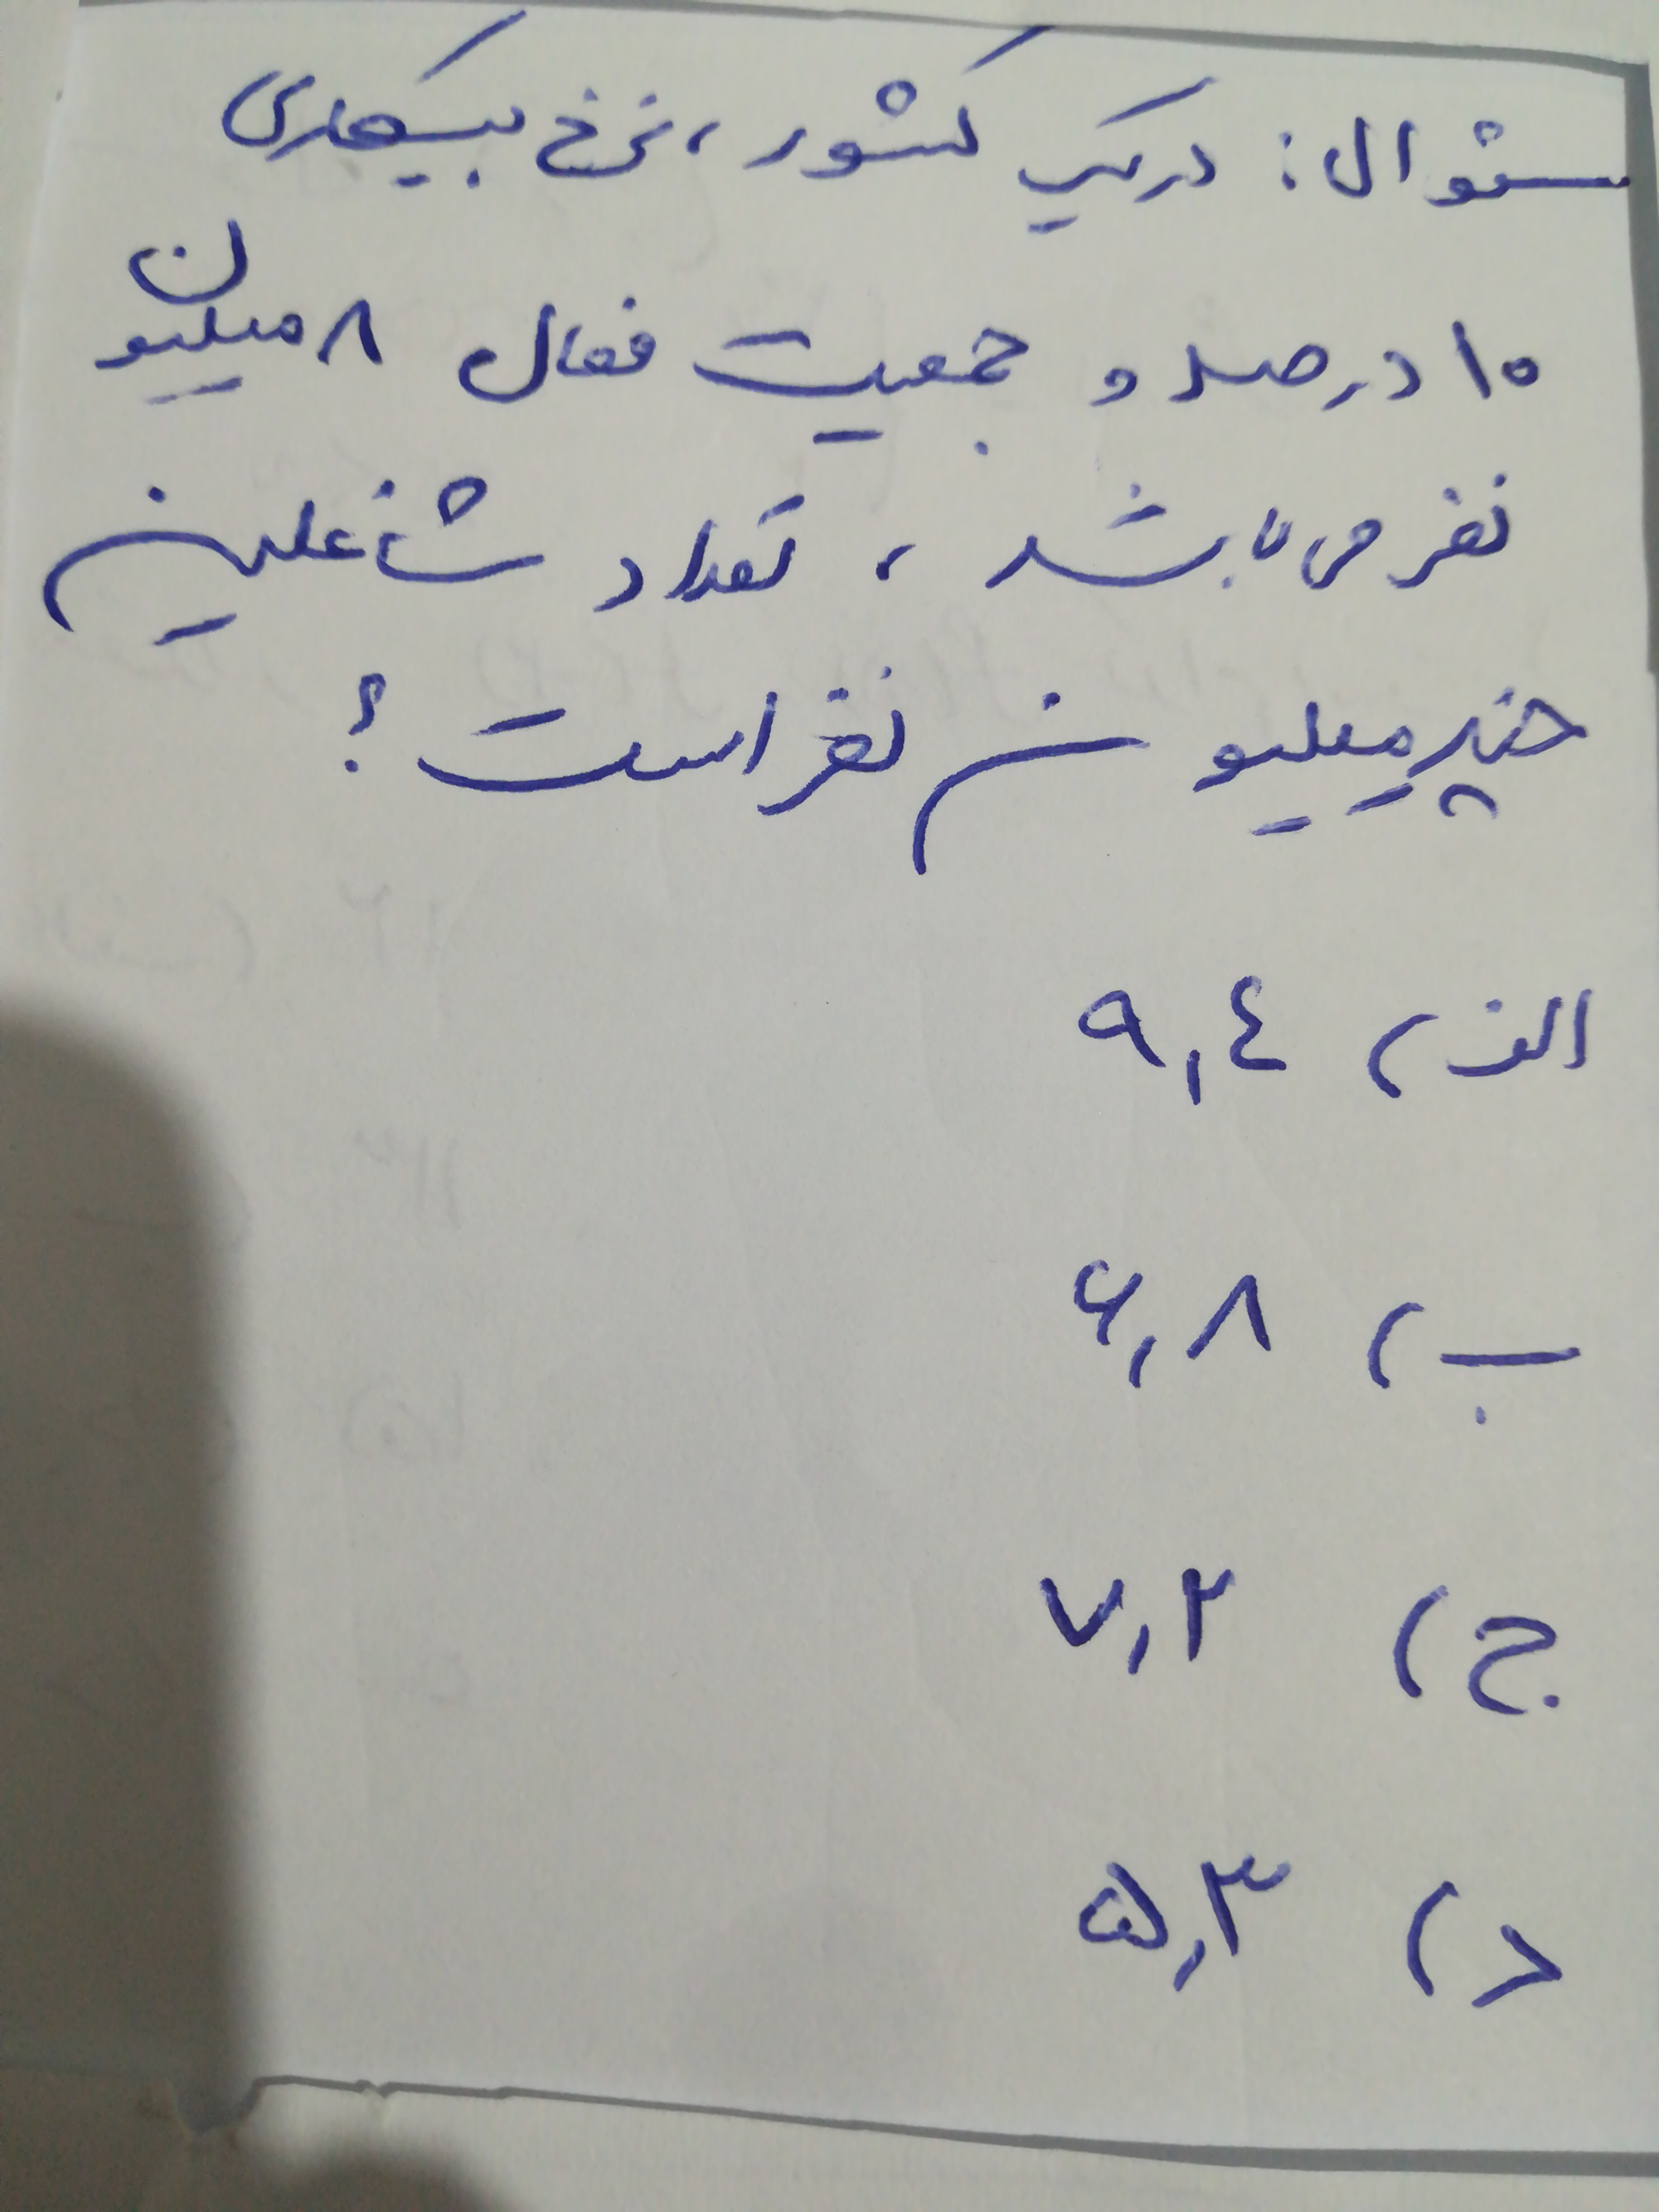 سئوال: در یک کشور، نرخ بیکاری
۱۰ درصد و جمعیت فعال ۸ میلیون
نفر می باشد، تعداد شاغلین
چند میلیون نفر است؟
الف) ۹,۴
ب) ۶,۸
ج) ۷,۲
د) ۵,۳